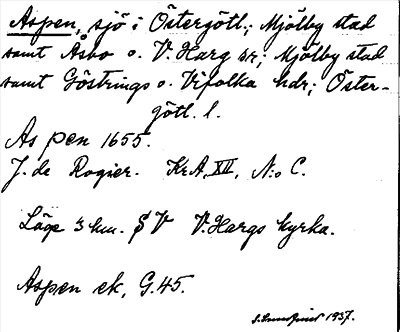 Aspen, sjö i Östergötl.; Mjölby stad
samt Åsbo o. V. Harg sr; Mjölby stad
samt Göstrings o. Vifolka hdr; Öster-
götl. l.
As pen 1655.
J. de Rogier. KrA, XII, N:o C.
Läge 3 km. S V V. Hargs kyrka.
Aspen ek, G. 45.
1937.